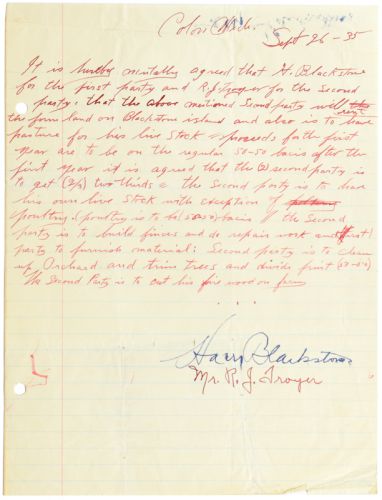 Colon Mich.
Sept 26-35
It is hereby mutually agreed that H. Blackstone
for the first party and R.J. Troyer for the Second
party; that the above mentioned Second party will
the farm land on Blackstone island and also is to have
pasture for his live Stock - proceeds for the first
year are to be on the regular 50-50 basis after the
first year it is agreed that the (2) second party is
to get (2/3) two thirds & the Second party is to have
his own live stock with exception of
poultry. (poultry is to be (50-50) basis the Second
party is to build fences and do repair work and (first)
party to furnish material: Second party is to clean
up Orchard and trim trees and divide fruit (50-50)
The Second Party is to cut his fire wood on farm
Harry Blackstone
Mr. R. J. Troyer